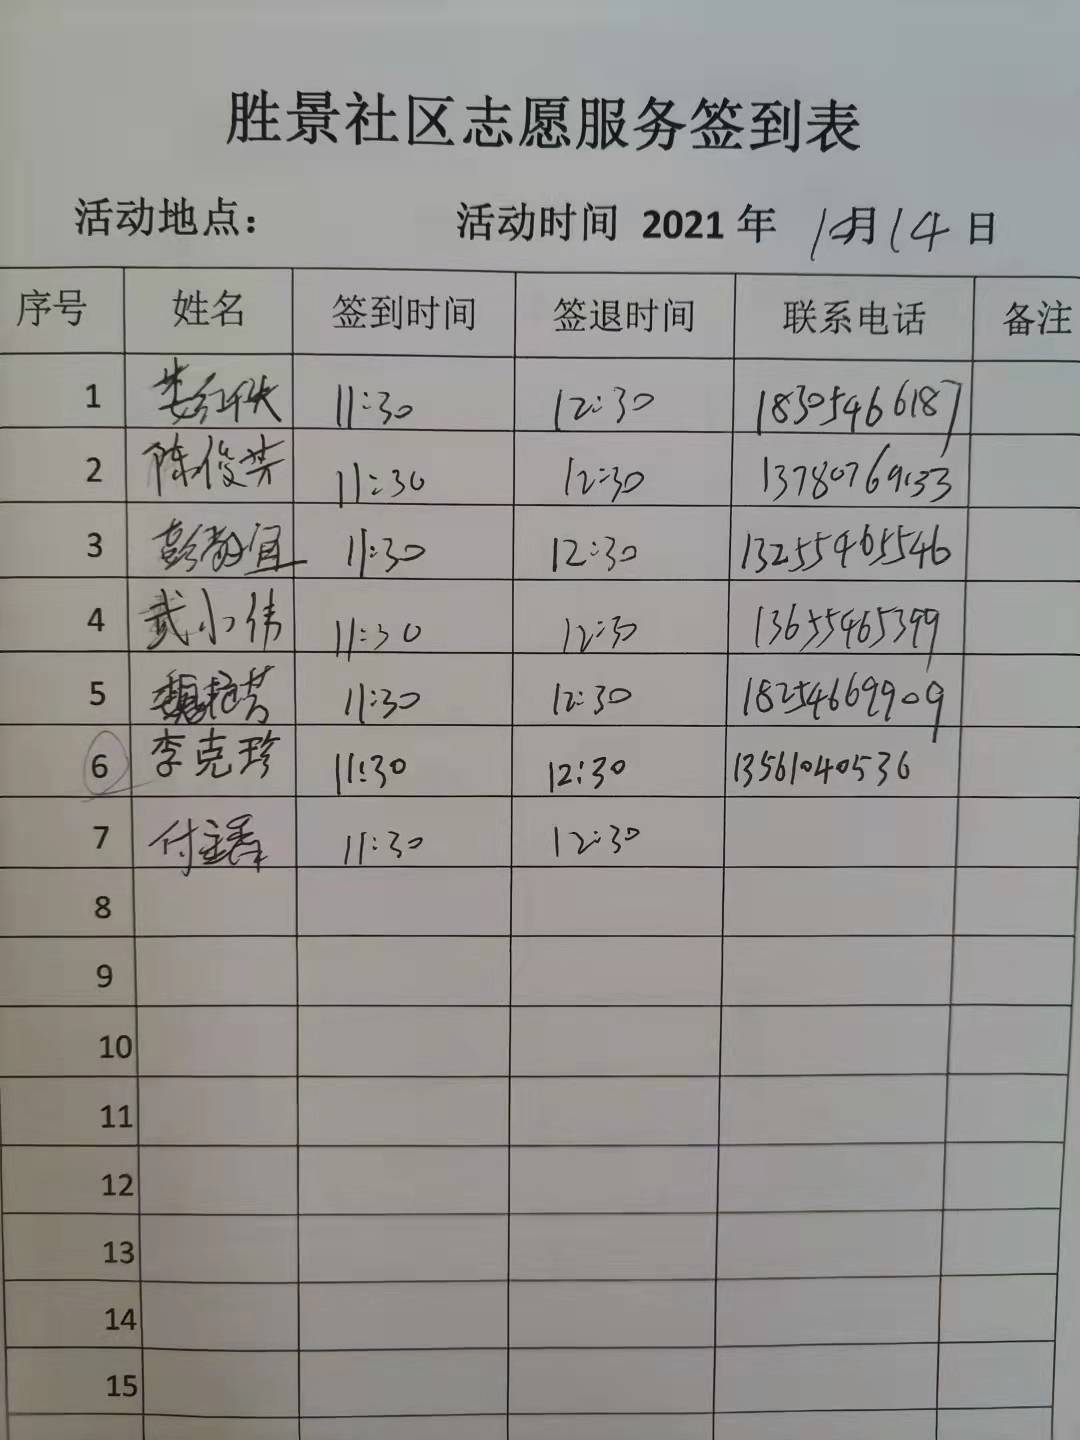 胜景社区志愿服务签到表
活动地点： 活动时间 2021 年 月 14 日
序号 姓名 签到时间 签退时间 联系电话 备注
1 11:30 12:30 18305466187
2 陈俊芳 11:30 12:30 13780769133
3 彭 宜 11:30 12:30 13255465546
4 武小伟 11:30 12:30 13655465399
5 魏 芳 11:30 12:30 18254669909
6 李克珍 11:30 12:30 13561040536
7 付 11:30 12:30
8
9
10
11
12
13
14
15